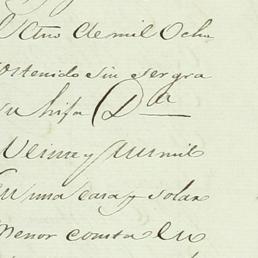 de mil Ocho
ostenido sin ser gra
su hija Dª
Veinte y un mil
una casa y solar
menor consta en